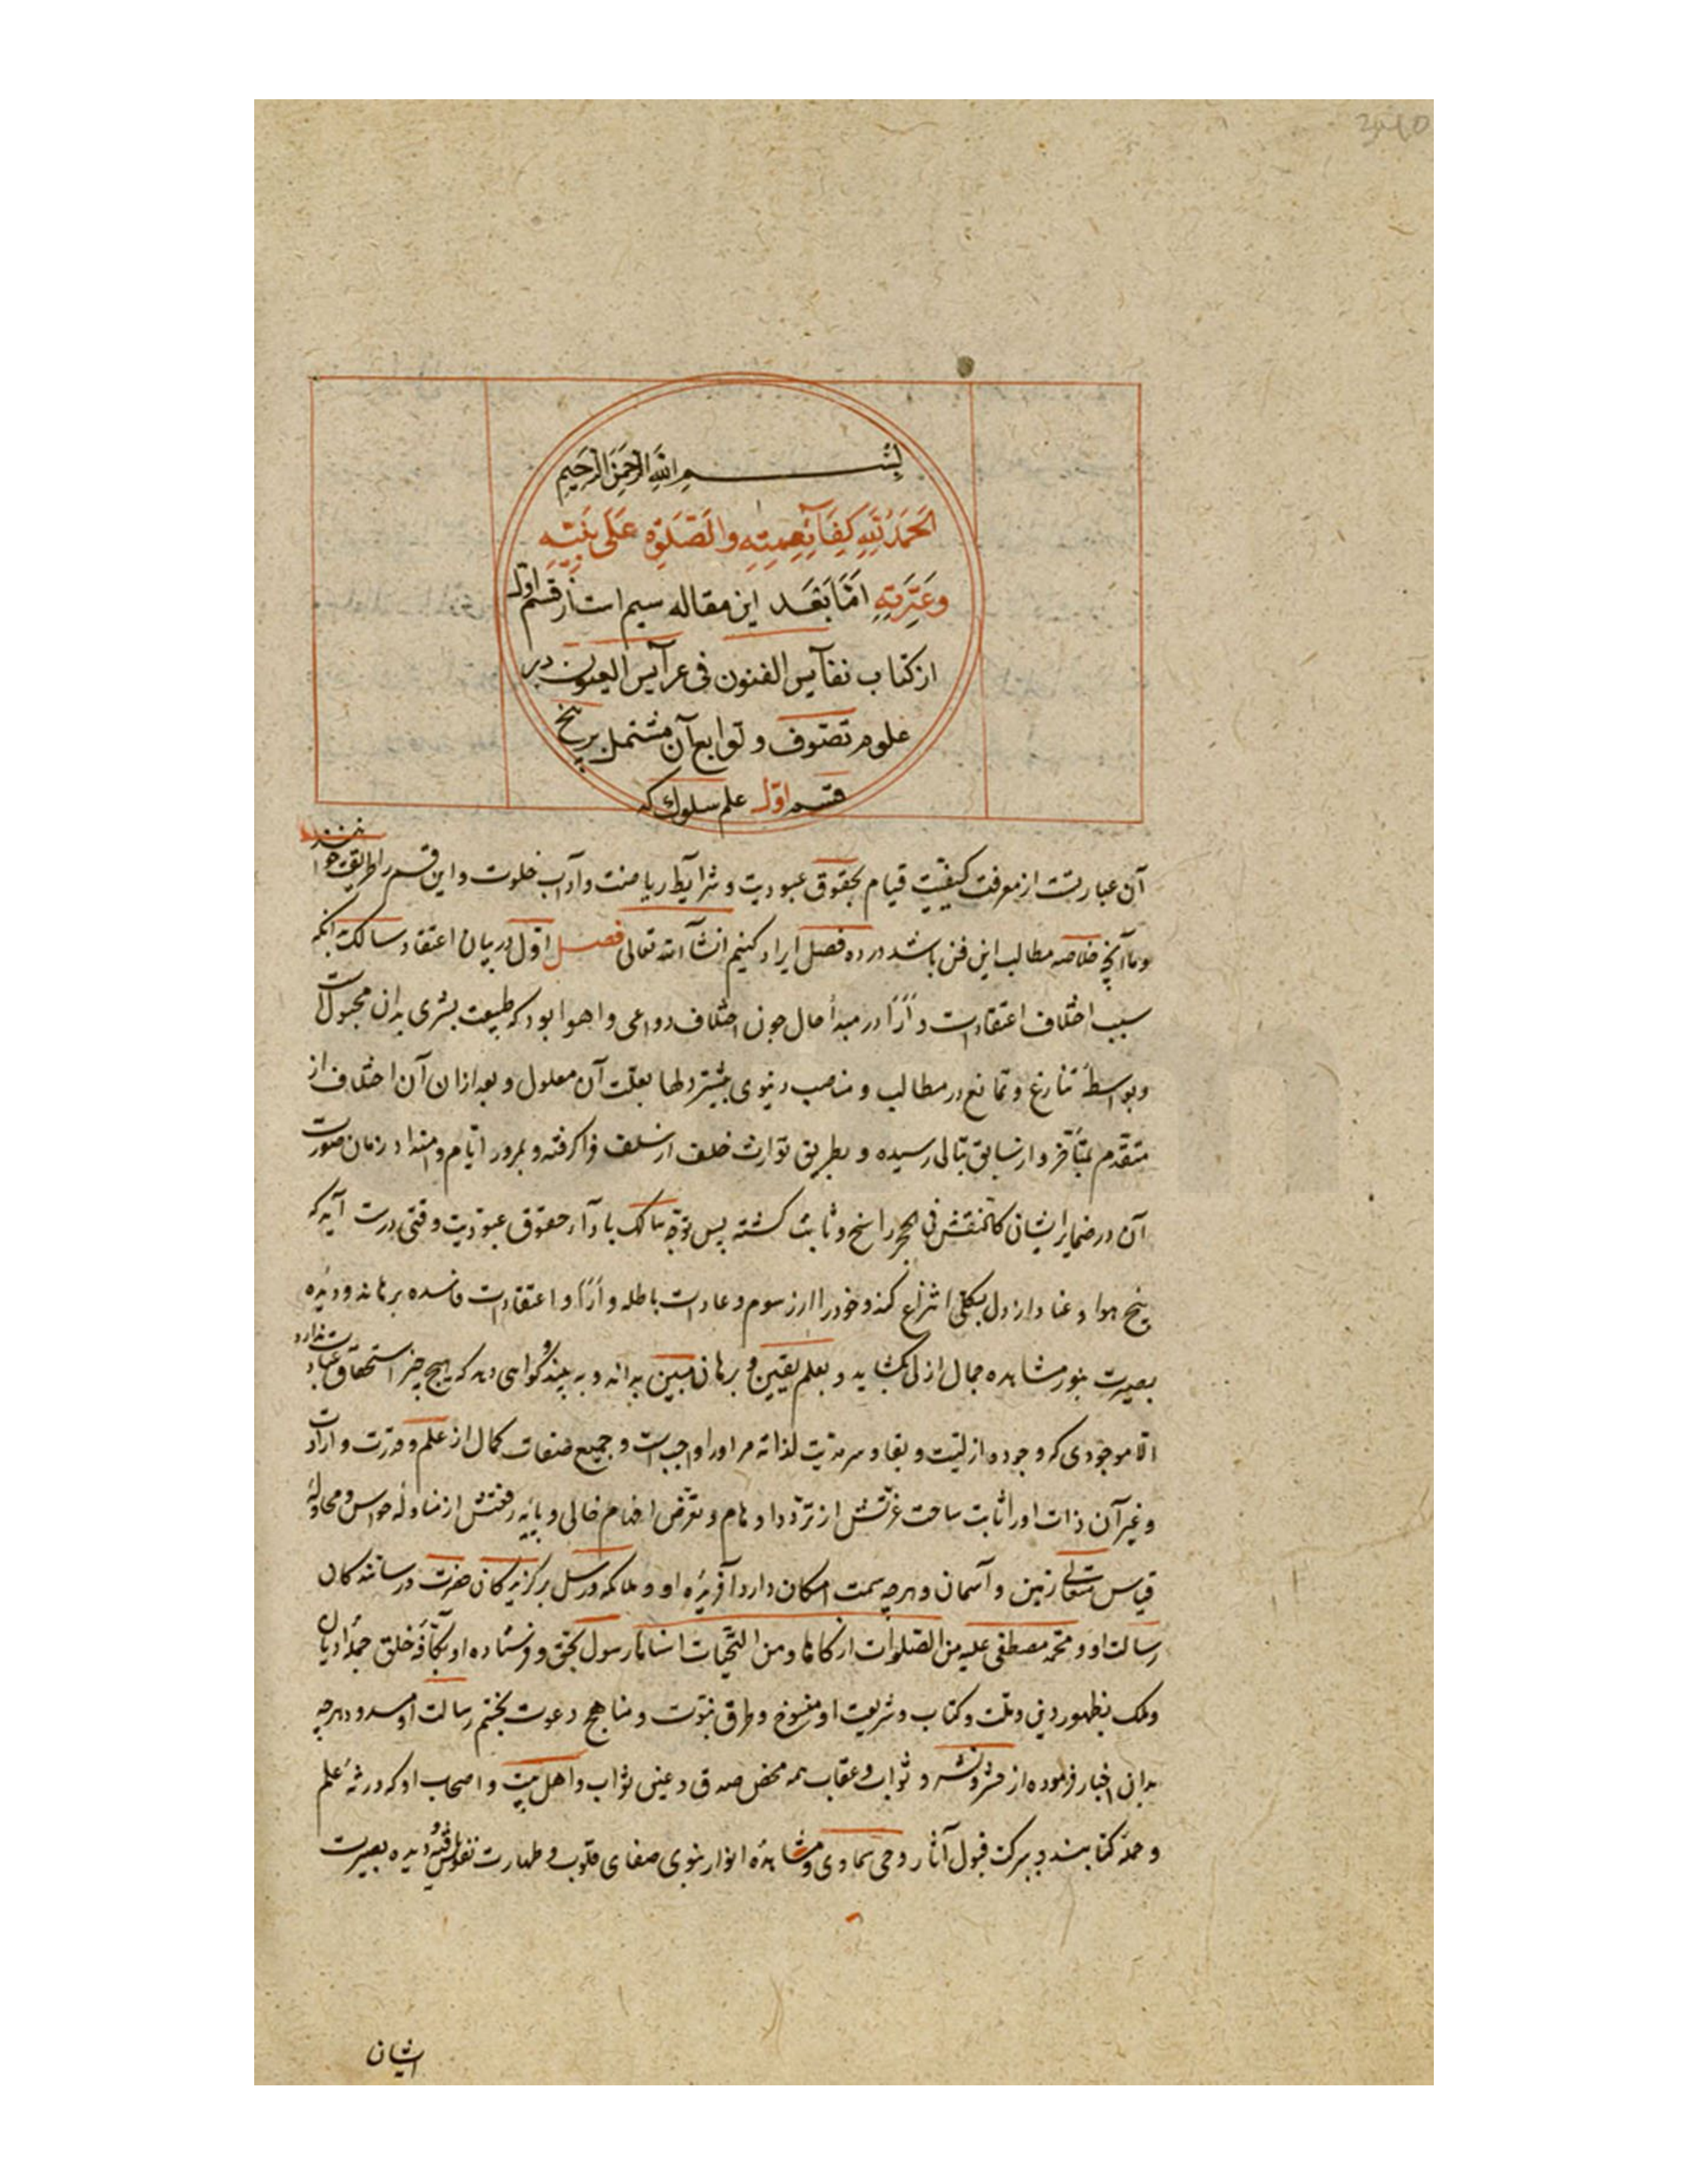 بسم الله الرحمن الرحیم
الحمد لله کفآء نعمته والصلوة علی نبیه
وعترته اما بعد این مقاله سیم است از قسم اول
از کتاب نفآیس الفنون فی عرآیس العیون در
علوم تصوف و توابع آن مشتمل بر پنج
قسم اول علم سلوک که
آن عبارتست از معرفت کیفیت قیام بحقوق عبودیت و شرآیط ریاضت و آداب خلوت و این قسم را طریقت خوانند
وما آنچه خلاصه مطالب این فن باشد در ده فصل ایراد کنیم انشآء الله تعالی فصل اول در بیان اعتقاد سالک بدانکه
سبب اختلاف اعتقادات و آرآ در مبدأ حال چون اختلاف دواعی و اهوا بود که طبیعت بشری بدان مجبول است
وبواسطه تنازع و تمانع در مطالب و مناصب دنیوی بیشتر دلها بعلت آن معلول و بعد ازان آن اختلاف از
متقدم بمتأخر و از سابق بتالی رسیده و بطریق توارث خلف از سلف فرا گرفته و بمرور ایام و امتداد زمان صورت
آن در ضمایر ایشان کالنقش فی الحجر راسخ و ثابت کشته پس توجه سالک بادآء حقوق عبودیت وقتی درست آید که
بیخ هوا و عناد از دل بکلی انتزاع کند و خود را از رسوم و عادات باطله و آرآء و اعتقادات فاسده برهاند و دیده
بصیرت بنور مشاهده جمال ازلی بکشاید و بعلم یقین و برهان مبین بداند و به بیند و کواهی دهد که هیچ چیز استحقاق عبادت ندارد
الا موجودی که وجود و ازلیت و بقا و سرمدیت لذاته مر او را واجب است و جمیع صفات کمال از علم و قدرت و ارادت
و غیر آن ذات او را ثابت ساحت عزتش از تردد اوهام و تعرض افهام خالی و پایه رفعتش از مناوله حواس و محاوله
قیاس متعالی زمین و آسمان و هرچه سمت امکان دارد آفریده او و ملائکه و رسل برکزیدکان حضرت و رسانندکان
رسالت او و محمد مصطفی علیه من الصلوات ازکاها و من التحیات اسناها رسول بحق و فرستاده او بکافه خلق جمله ادیان
وملک بظهور دین و ملت و کتاب و شریعت او منسوخ و طرق نبوت و مناهج دعوت بختم رسالت او مسدود و هرچه
بدان اخبار فرموده از حشر و نشر و ثواب و عقاب همه محض صدق و عین ثواب و اهل بیت و اصحاب او که ورثه علم
و حمله کتابند و ببرکت قبول آثار وحی سماوی و مشاهده انوار نبوی صفای قلوب و طهارت نفوس یافته و دیده بصیرت
ایشان